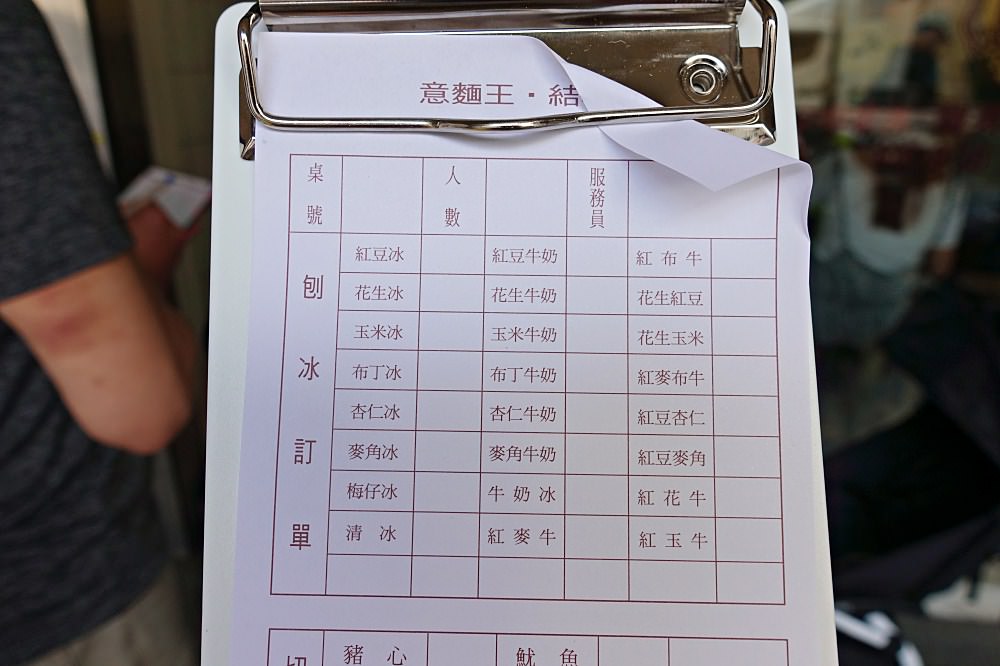 意麵王・結
桌號 人數 服務員
刨冰訂單
紅豆冰 紅豆牛奶 紅布牛
花生冰 花生牛奶 花生紅豆
玉米冰 玉米牛奶 花生玉米
布丁冰 布丁牛奶 紅麥布牛
杏仁冰 杏仁牛奶 紅豆杏仁
麥角冰 麥角牛奶 紅豆麥角
梅仔冰 牛奶冰 紅花牛
清冰 紅麥牛 紅玉牛
切 豬心 魷魚